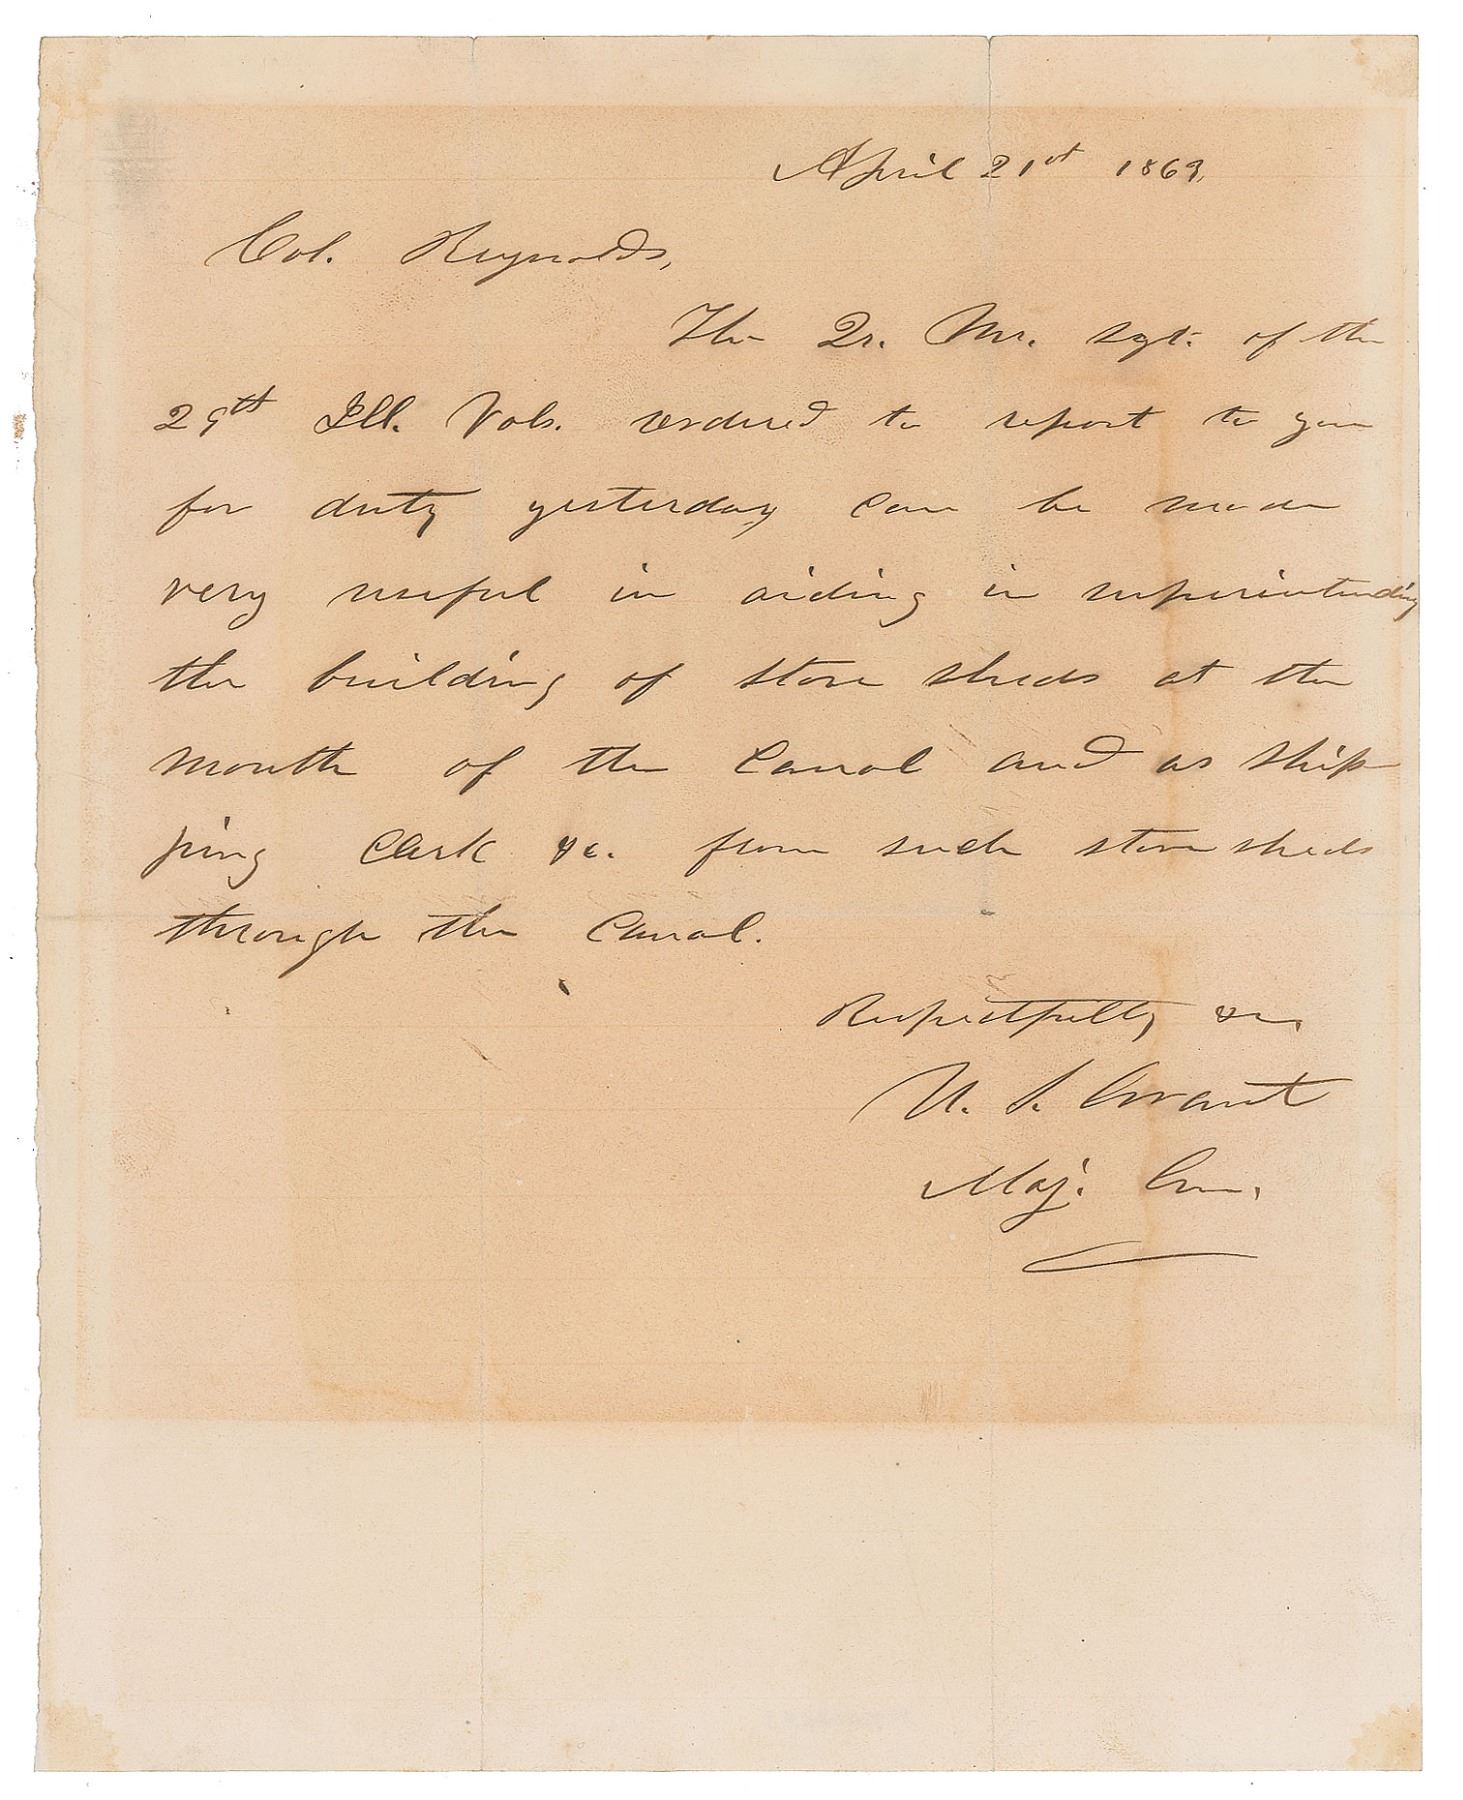 April 21st 1863,
Col. Reynolds,
The Qr. Mr. Sgt. of the
29th Ill. Vols. ordered to report to you
for duty yesterday can be made
very useful in aiding in superintending
the building of store sheds at the
mouth of the Canal and as ship-
ping Clerk &c. from such store sheds
through the Canal.
Respectfully &c.
U. S. Grant
Maj. Gen.